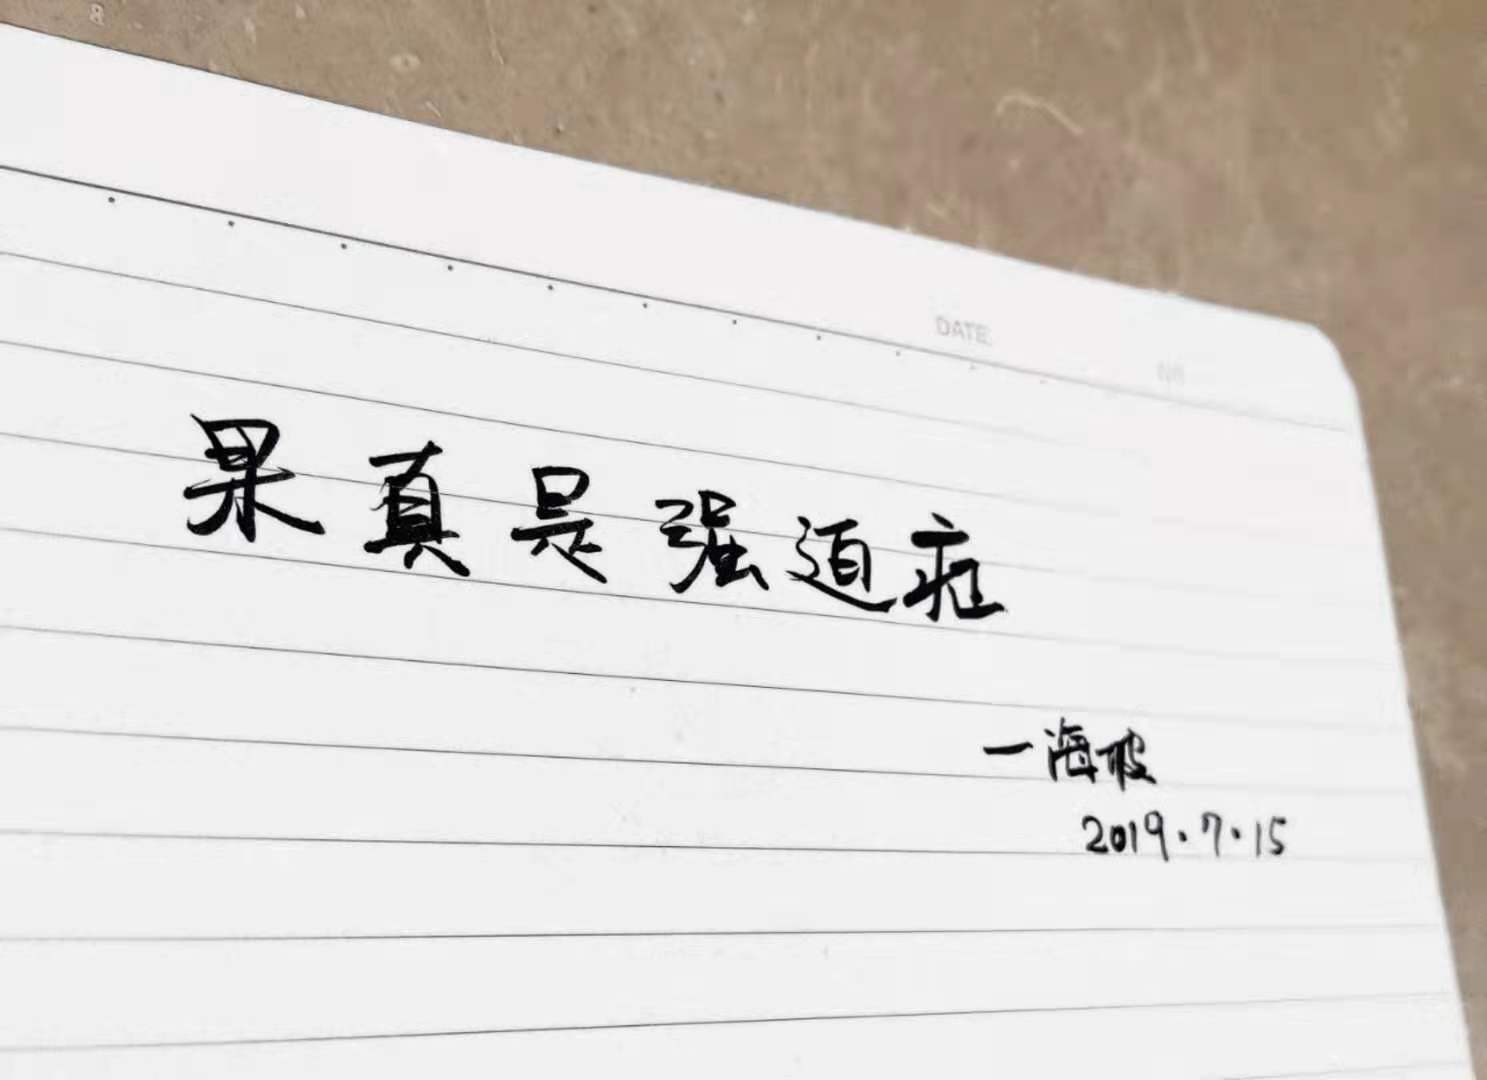 DATE.
果真是强迫症
一海坡
2019.7.15